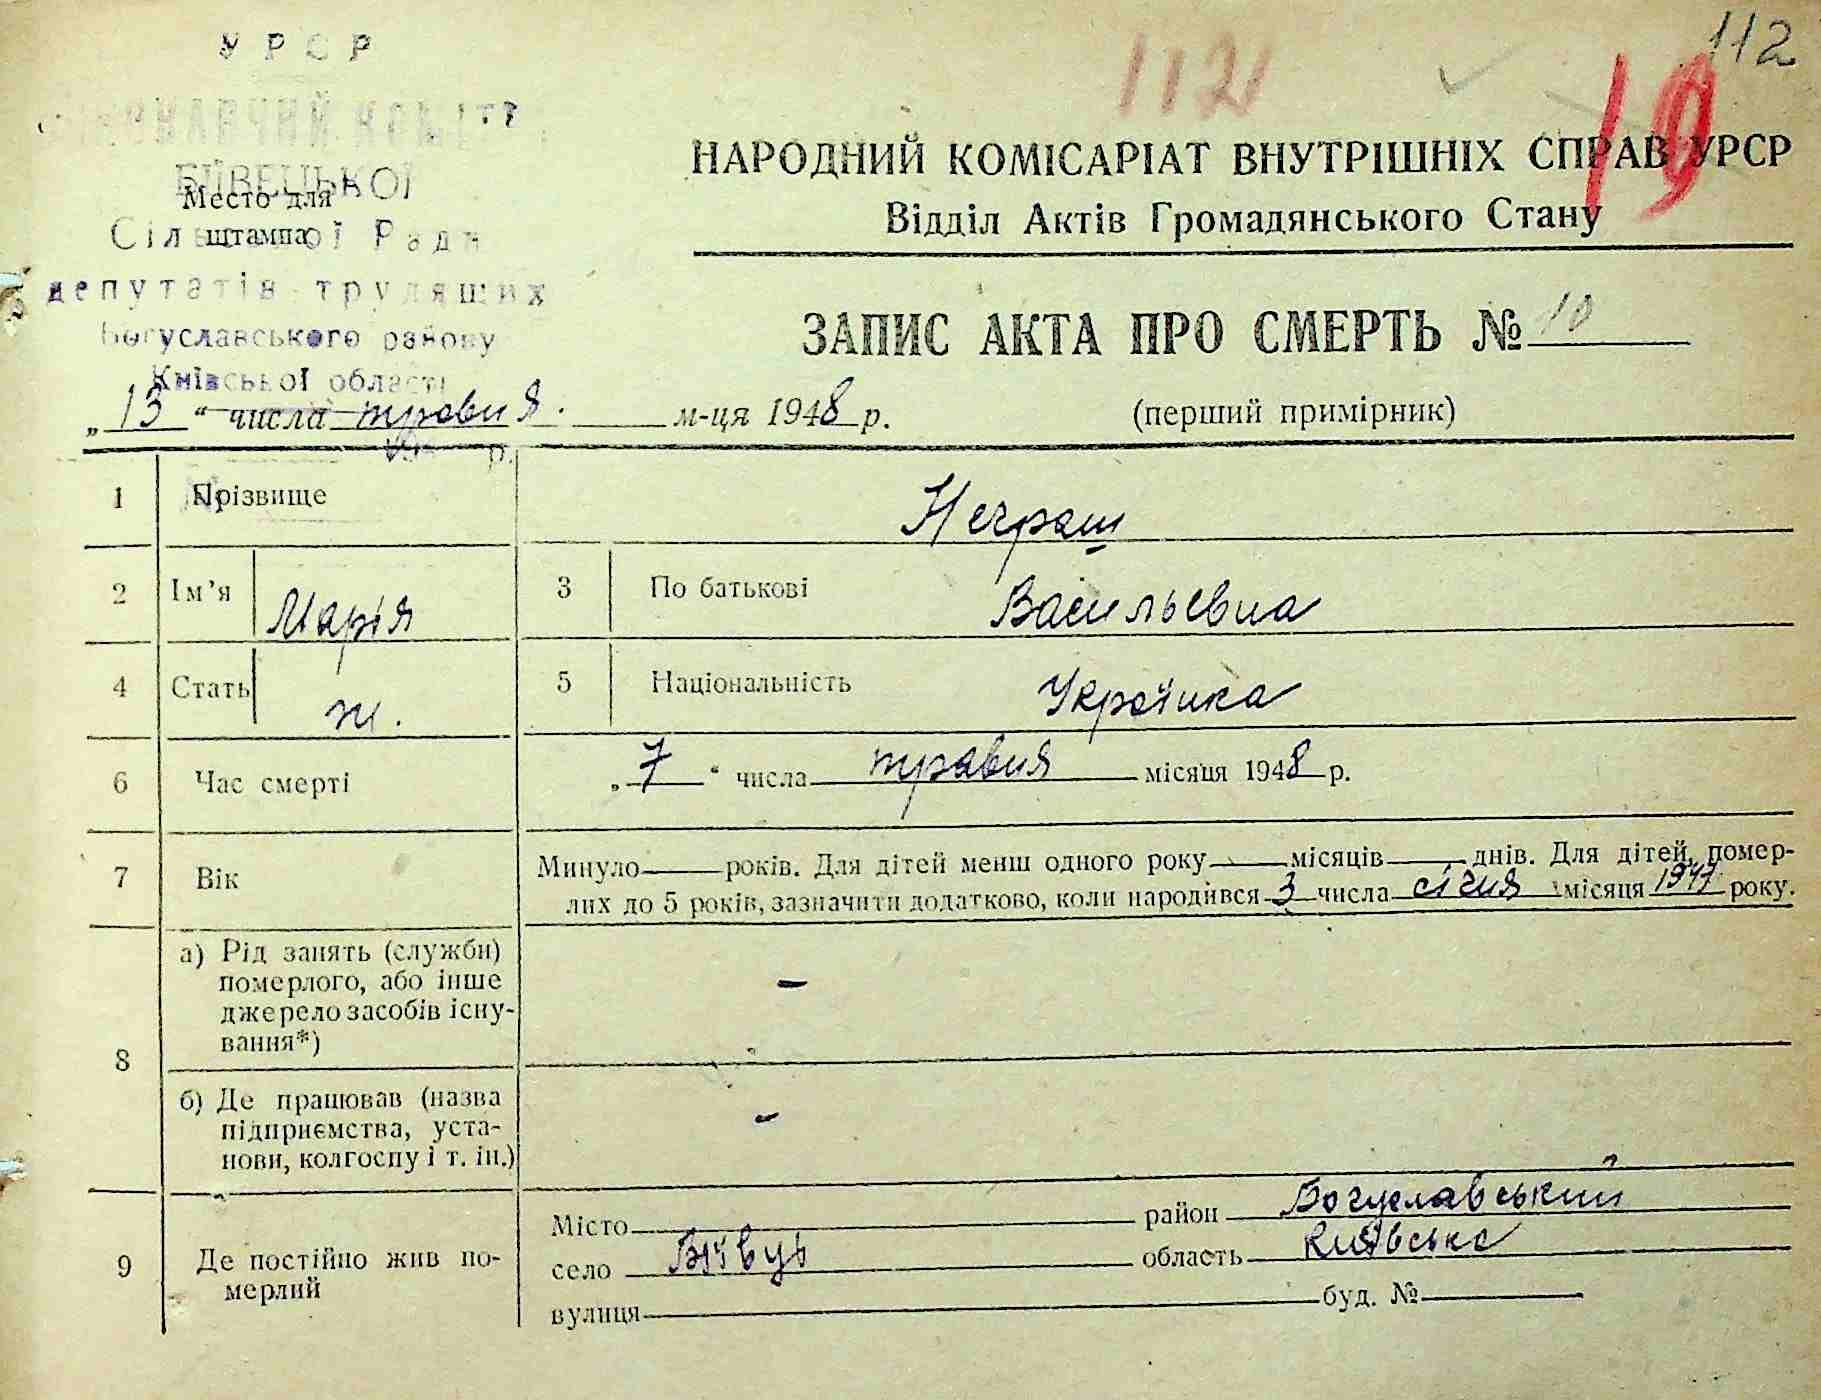 112
112
19
УРСР
БІЇВЕЦЬКОЇ
Место для
штампа
Сільської Ради
депутатів трудящих
Богуславського району
Київської області
НАРОДНИЙ КОМІСАРІАТ ВНУТРІШНІХ СПРАВ УРСР
Відділ Актів Громадянського Стану
ЗАПИС АКТА ПРО СМЕРТЬ № 10
„13“ числа травня м-ця 1948 р.
(перший примірник)
1 Прізвище
2 Ім'я Марія 3 По батькові Васильевна
4 Стать ж. 5 Національність Українка
6 Час смерті „7“ числа травня місяця 1948 р.
7 Вік Минуло — років. Для дітей менш одного року — місяців — днів. Для дітей, помер-
лих до 5 років, зазначити додатково, коли народився 3 числа січня місяця 1947 року.
8 а) Рід занять (служби)
померлого, або інше
джерело засобів існу-
вання*) –
б) Де працював (назва
підприємства, уста-
нови, колгоспу і т. ін.) –
9 Де постійно жив по-
мерлий
Місто район Богуславський
село Біївці область Київська
вулиця буд. №